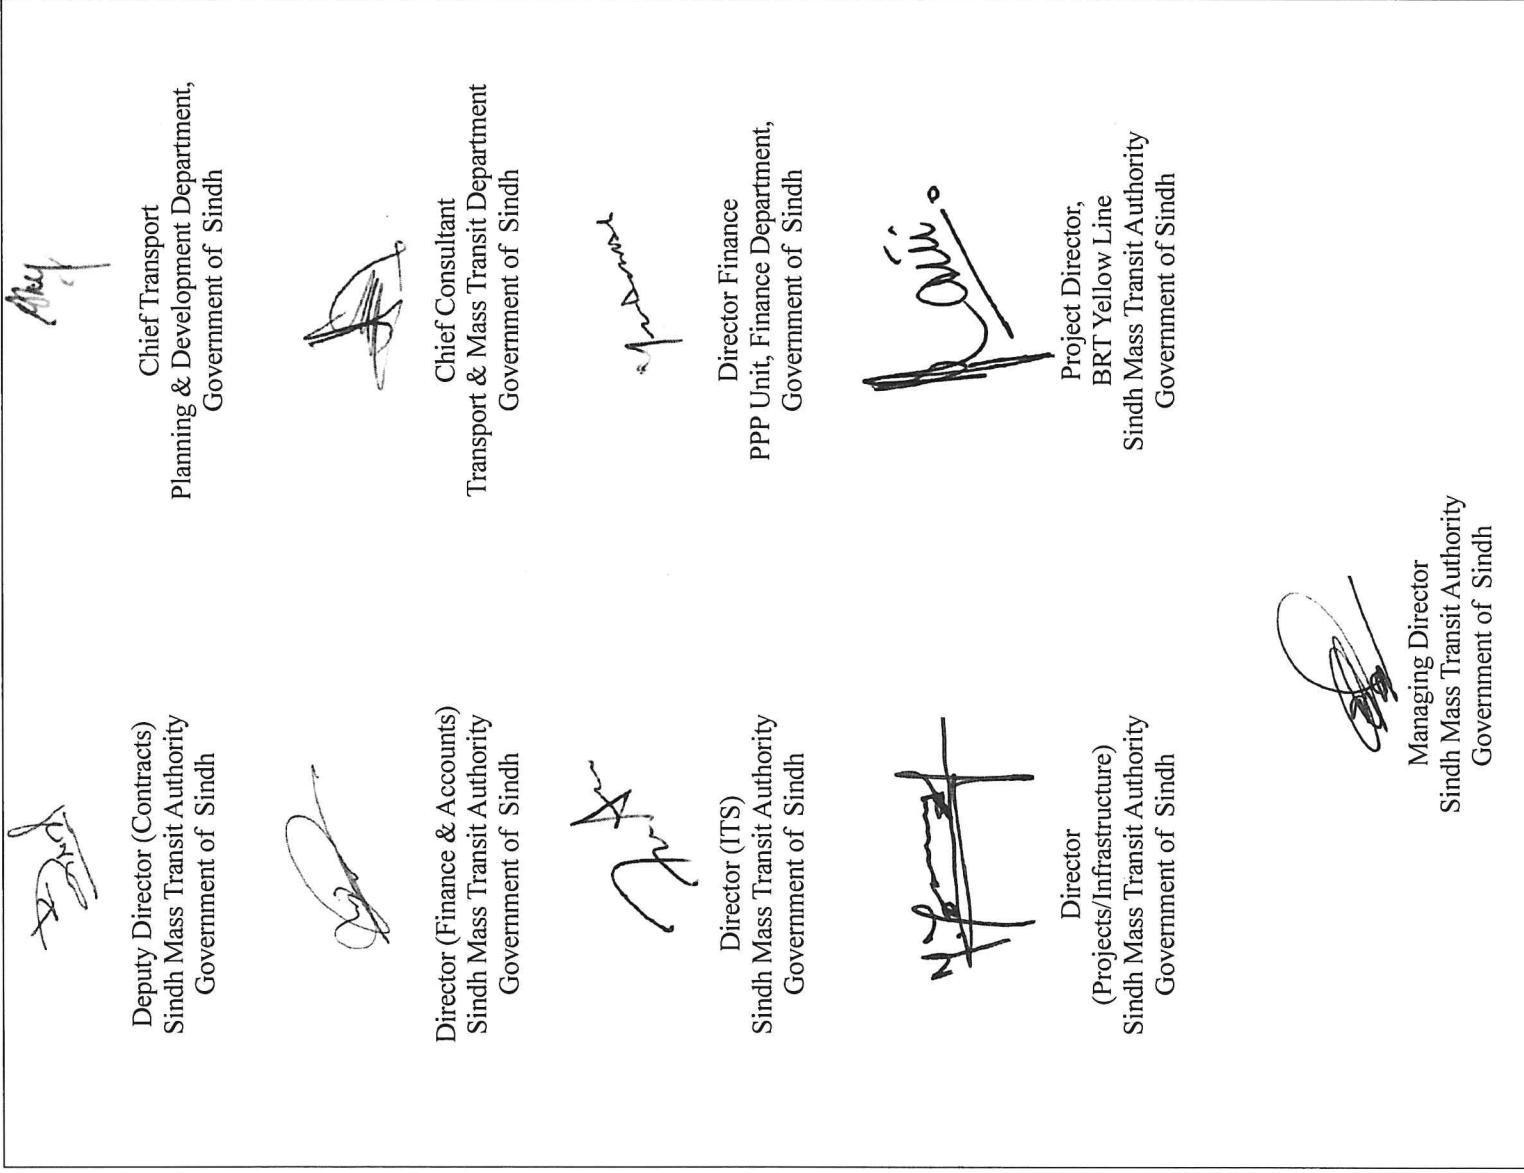 Deputy Director (Contracts)
Sindh Mass Transit Authority
Government of Sindh
Chief Transport
Planning & Development Department,
Government of Sindh
Director (Finance & Accounts)
Sindh Mass Transit Authority
Government of Sindh
Chief Consultant
Transport & Mass Transit Department
Government of Sindh
Director (ITS)
Sindh Mass Transit Authority
Government of Sindh
Director Finance
PPP Unit, Finance Department,
Government of Sindh
Director
(Projects/Infrastructure)
Sindh Mass Transit Authority
Government of Sindh
Project Director,
BRT Yellow Line
Sindh Mass Transit Authority
Government of Sindh
Managing Director
Sindh Mass Transit Authority
Government of Sindh